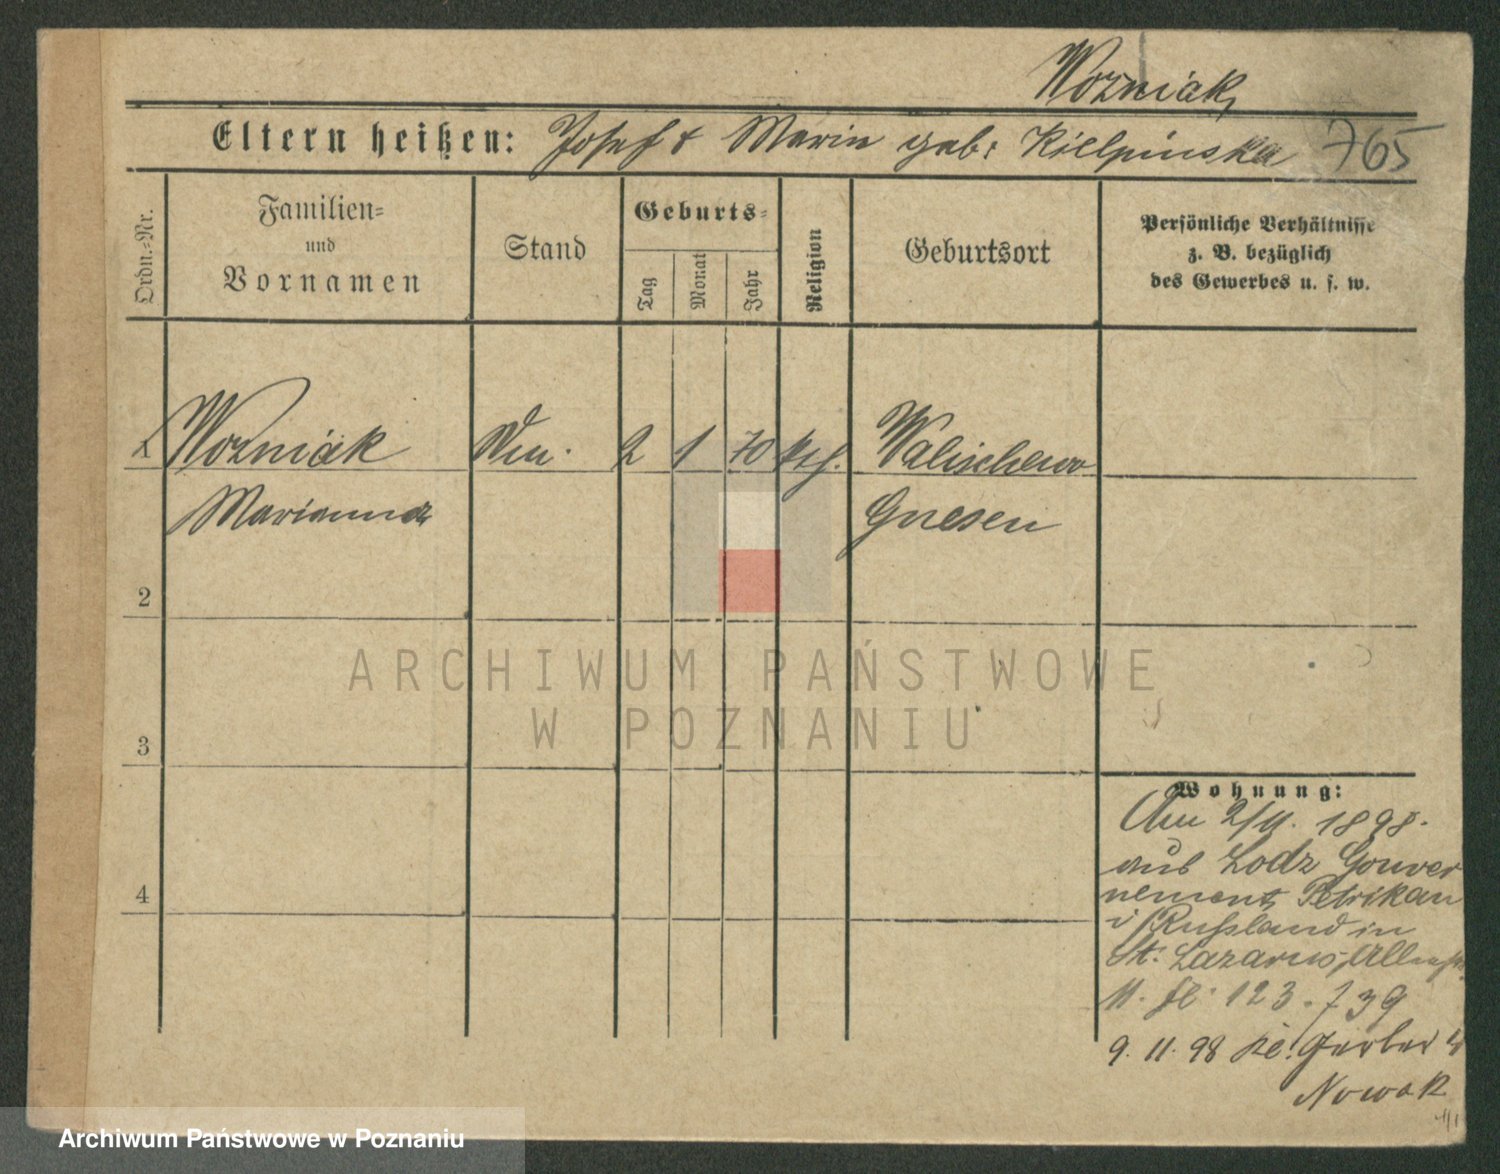 Wozniak,
Eltern heißen: Josef & Maria geb: Kielpinska 765
Ordn.-Nr.
Familien-
und
Vornamen
Stand
Geburts-
Tag
Monat
Jahr
Religion
Geburtsort
Persönliche Verhältnisse
z. B. bezüglich
des Gewerbes u. s. w.
1 Wozniak 2 1 70 kth. Walischewo
Marianna Gnesen
2
3
4
ARCHIWUM PAŃSTWOWE
W POZNANIU
Wohnung:
Am 2/11. 1898.
aus Lodz Gouver
nement Petrikau
i/Russland in
St. Lazarus,
11. 123. 739
9. 11. 98 Gerber
Nowak
Archiwum Państwowe w Poznaniu